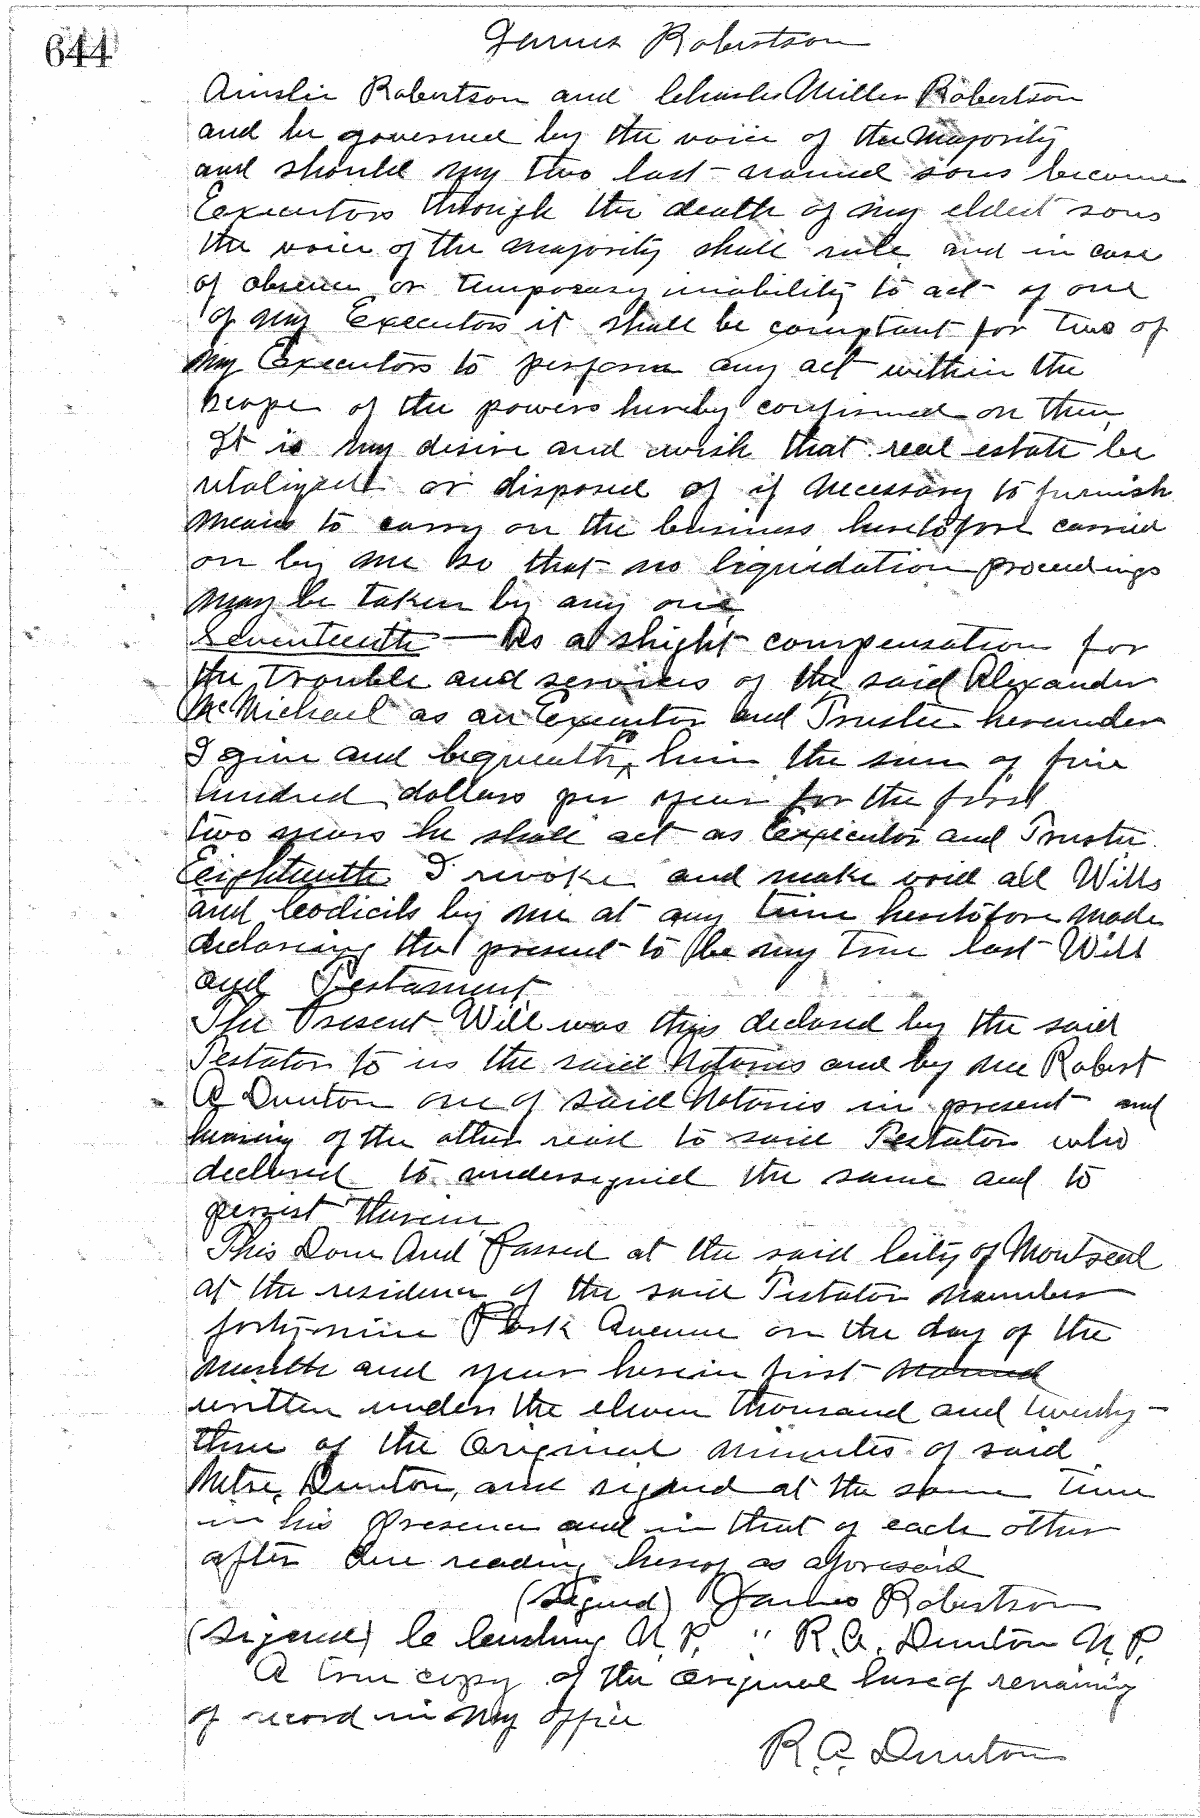 644
James Robertson
Ainslie Robertson and Charles Miller Robertson
and be governed by the voice of the majority
and should my two last-named sons become
Executors through the death of my eldest sons
the voice of the majority shall rule and in case
of absence or temporary inability to act of one
of my Executors it shall be comptant for two of
my Executors to perform any act within the
scope of the powers hereby confirmed on them
It is my desire and wish that real estate be
or disposed of if necessary to furnish
means to carry on the business heretofore carried
on by me so that no liquidation proceedings
may be taken by any one
Seventeenth — As a slight compensation for
the trouble and services of the said Alexander
McMichael as an Executor and Trustee hereunder
I give and bequeath to him the sum of five
hundred dollars per year for the first
two years he shall act as Executor and Trustee.
Eighteenth I revoke and make void all Wills
and Codicils by me at any time heretofore made
declaring the present to be my true last Will
and Testament
The Present Will was thus declared by the said
Testator to us the said Notaries and by me Robert
A Dunton one of said Notaries in present and
hearing of the other read to said Testator who
declared to undersigned the same and to
persist therein
This Done And Passed at the said City of Montreal
at the residence of the said Testator number
forty-nine Park Avenue on the day of the
month and year herein first named
written under the eleven thousand and twenty-
three of the Original minutes of said
Mtre. Dunton, and signed at the same time
in his presence and in that of each other
after due reading hereof as aforesaid
(Signed) James Robertson
(Signed) C Cushing N.P. " R.A. Dunton N.P.
A true copy of the Original hereof remaining
of record in my office
R.A. Dunton